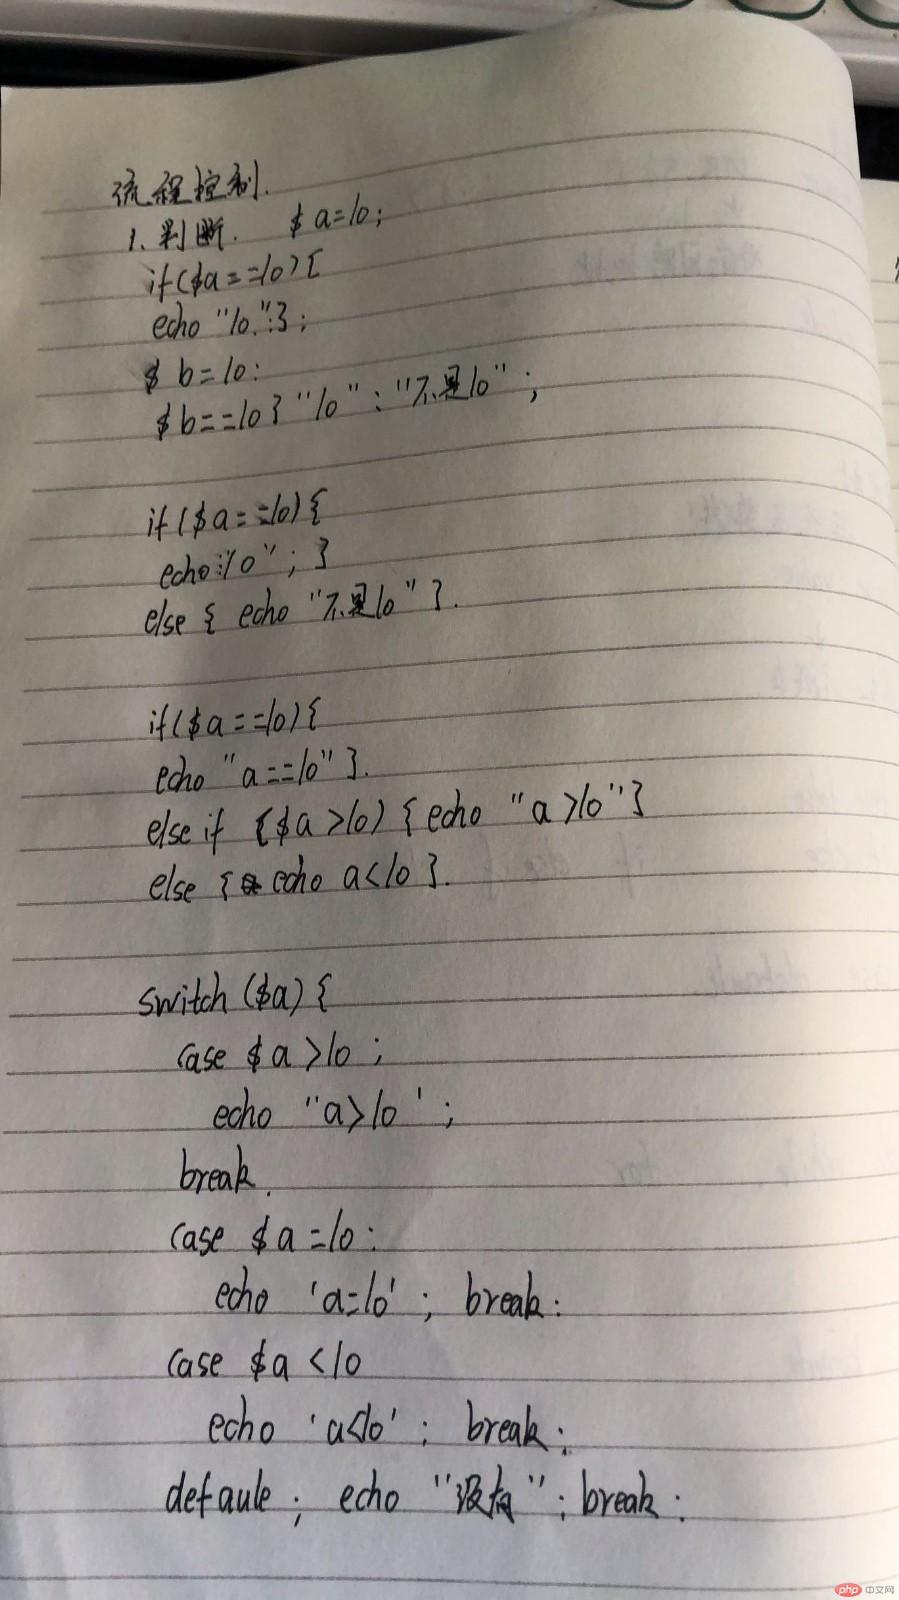 流程控制.
1. 判断. $a=10;
if($a==10){
echo "10.";};
$ b=10:
$b==10} "10" : "不是10" ;
if($a==10){
echo "10" ; }
else { echo "不是10" }.
if($a==10){
echo "a==10" }.
else if {$a>10) { echo "a>10" }
else { echo a<10 }.
switch ($a) {
case $a>10 ;
echo "a>10 ' ;
break.
case $a=10:
echo 'a=10' ; break:
case $a<10
echo 'a<10' ; break;
defaule ; echo "没有" ; break ;
php 中文网